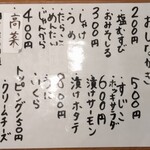 おしながき
200円
塩むすび
おみそしる
300円
しゃけ
うめ
たらこ
めんたい
400円
高菜
500円
すじこ
600円
漬けサーモン
漬けホタテ
800円
いくら
トッピング50円
クリームチーズ